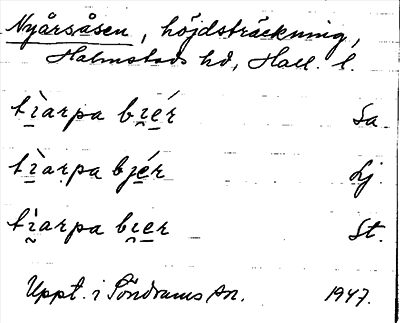 Nyårsåsen, höjdsträckning,
Halmstads hd, Hall. l.
tìarpa bi̯ér Sa
tìarpa bjér Lj.
tìarpa bi̯er St.
Uppt. i Söndrums sn. 1947.